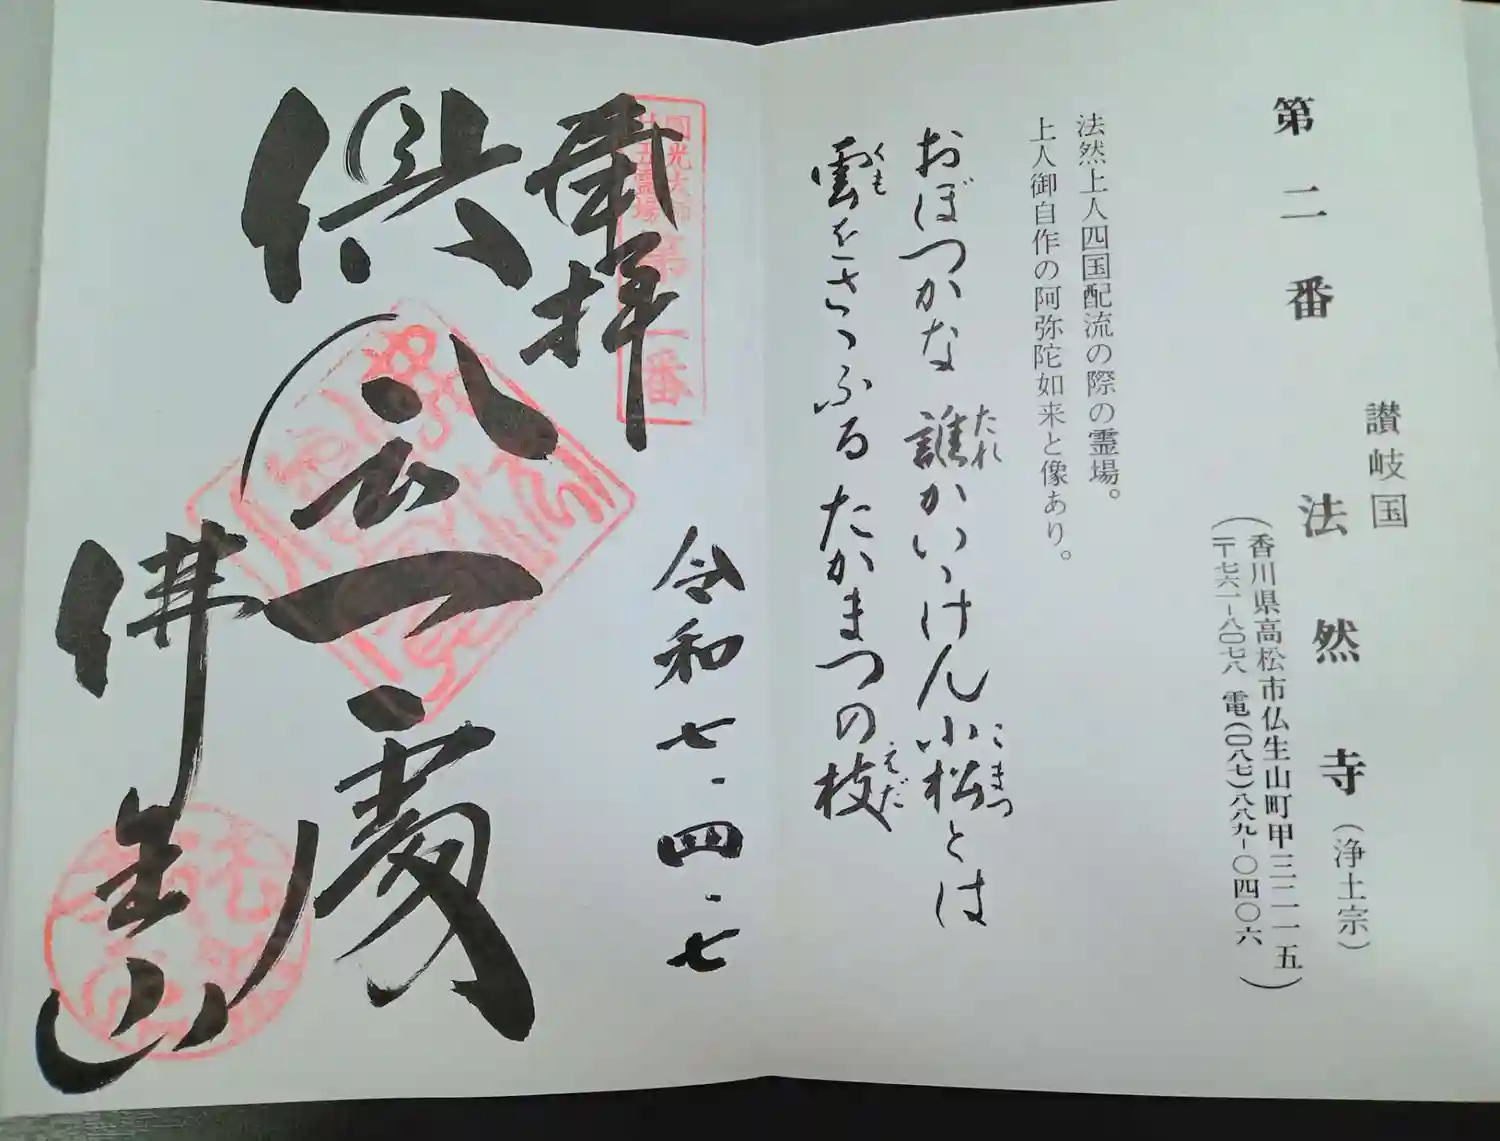 第二番
讃岐国
法然寺(浄土宗)
(香川県高松市仏生山町甲三二一五
〒七六一-八〇七八 電(〇八七)八八九-〇四〇六)
法然上人四国配流の際の霊場。
上人御自作の阿弥陀如来と像あり。
おぼつかな 誰かいゝけん小松とは
たれ
こまつ
雲をさゝふる たかまつの枝
くも
えだ
圓光大師
廿五霊場
第二番
奉拝
令和七.四.七
倶会一處
佛生山